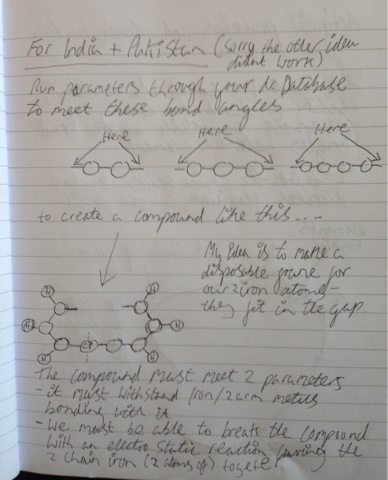 For India + Pakistan (sorry the other idea
didnt work)
Run parameters through your Database
to meet these bond angles
Here Here Here
to create a compound like this....
My Idea is to make a
disposable for
our 2 iron atoms -
they fit in the gap.
H H
H H
C?
H H
The compound must meet 2 parameters
- it must withstand Iron/2 atom metals
bonding with it
- We must be able to break the compound
With an electro Static reaction the
2 Chain iron (2 atoms of)